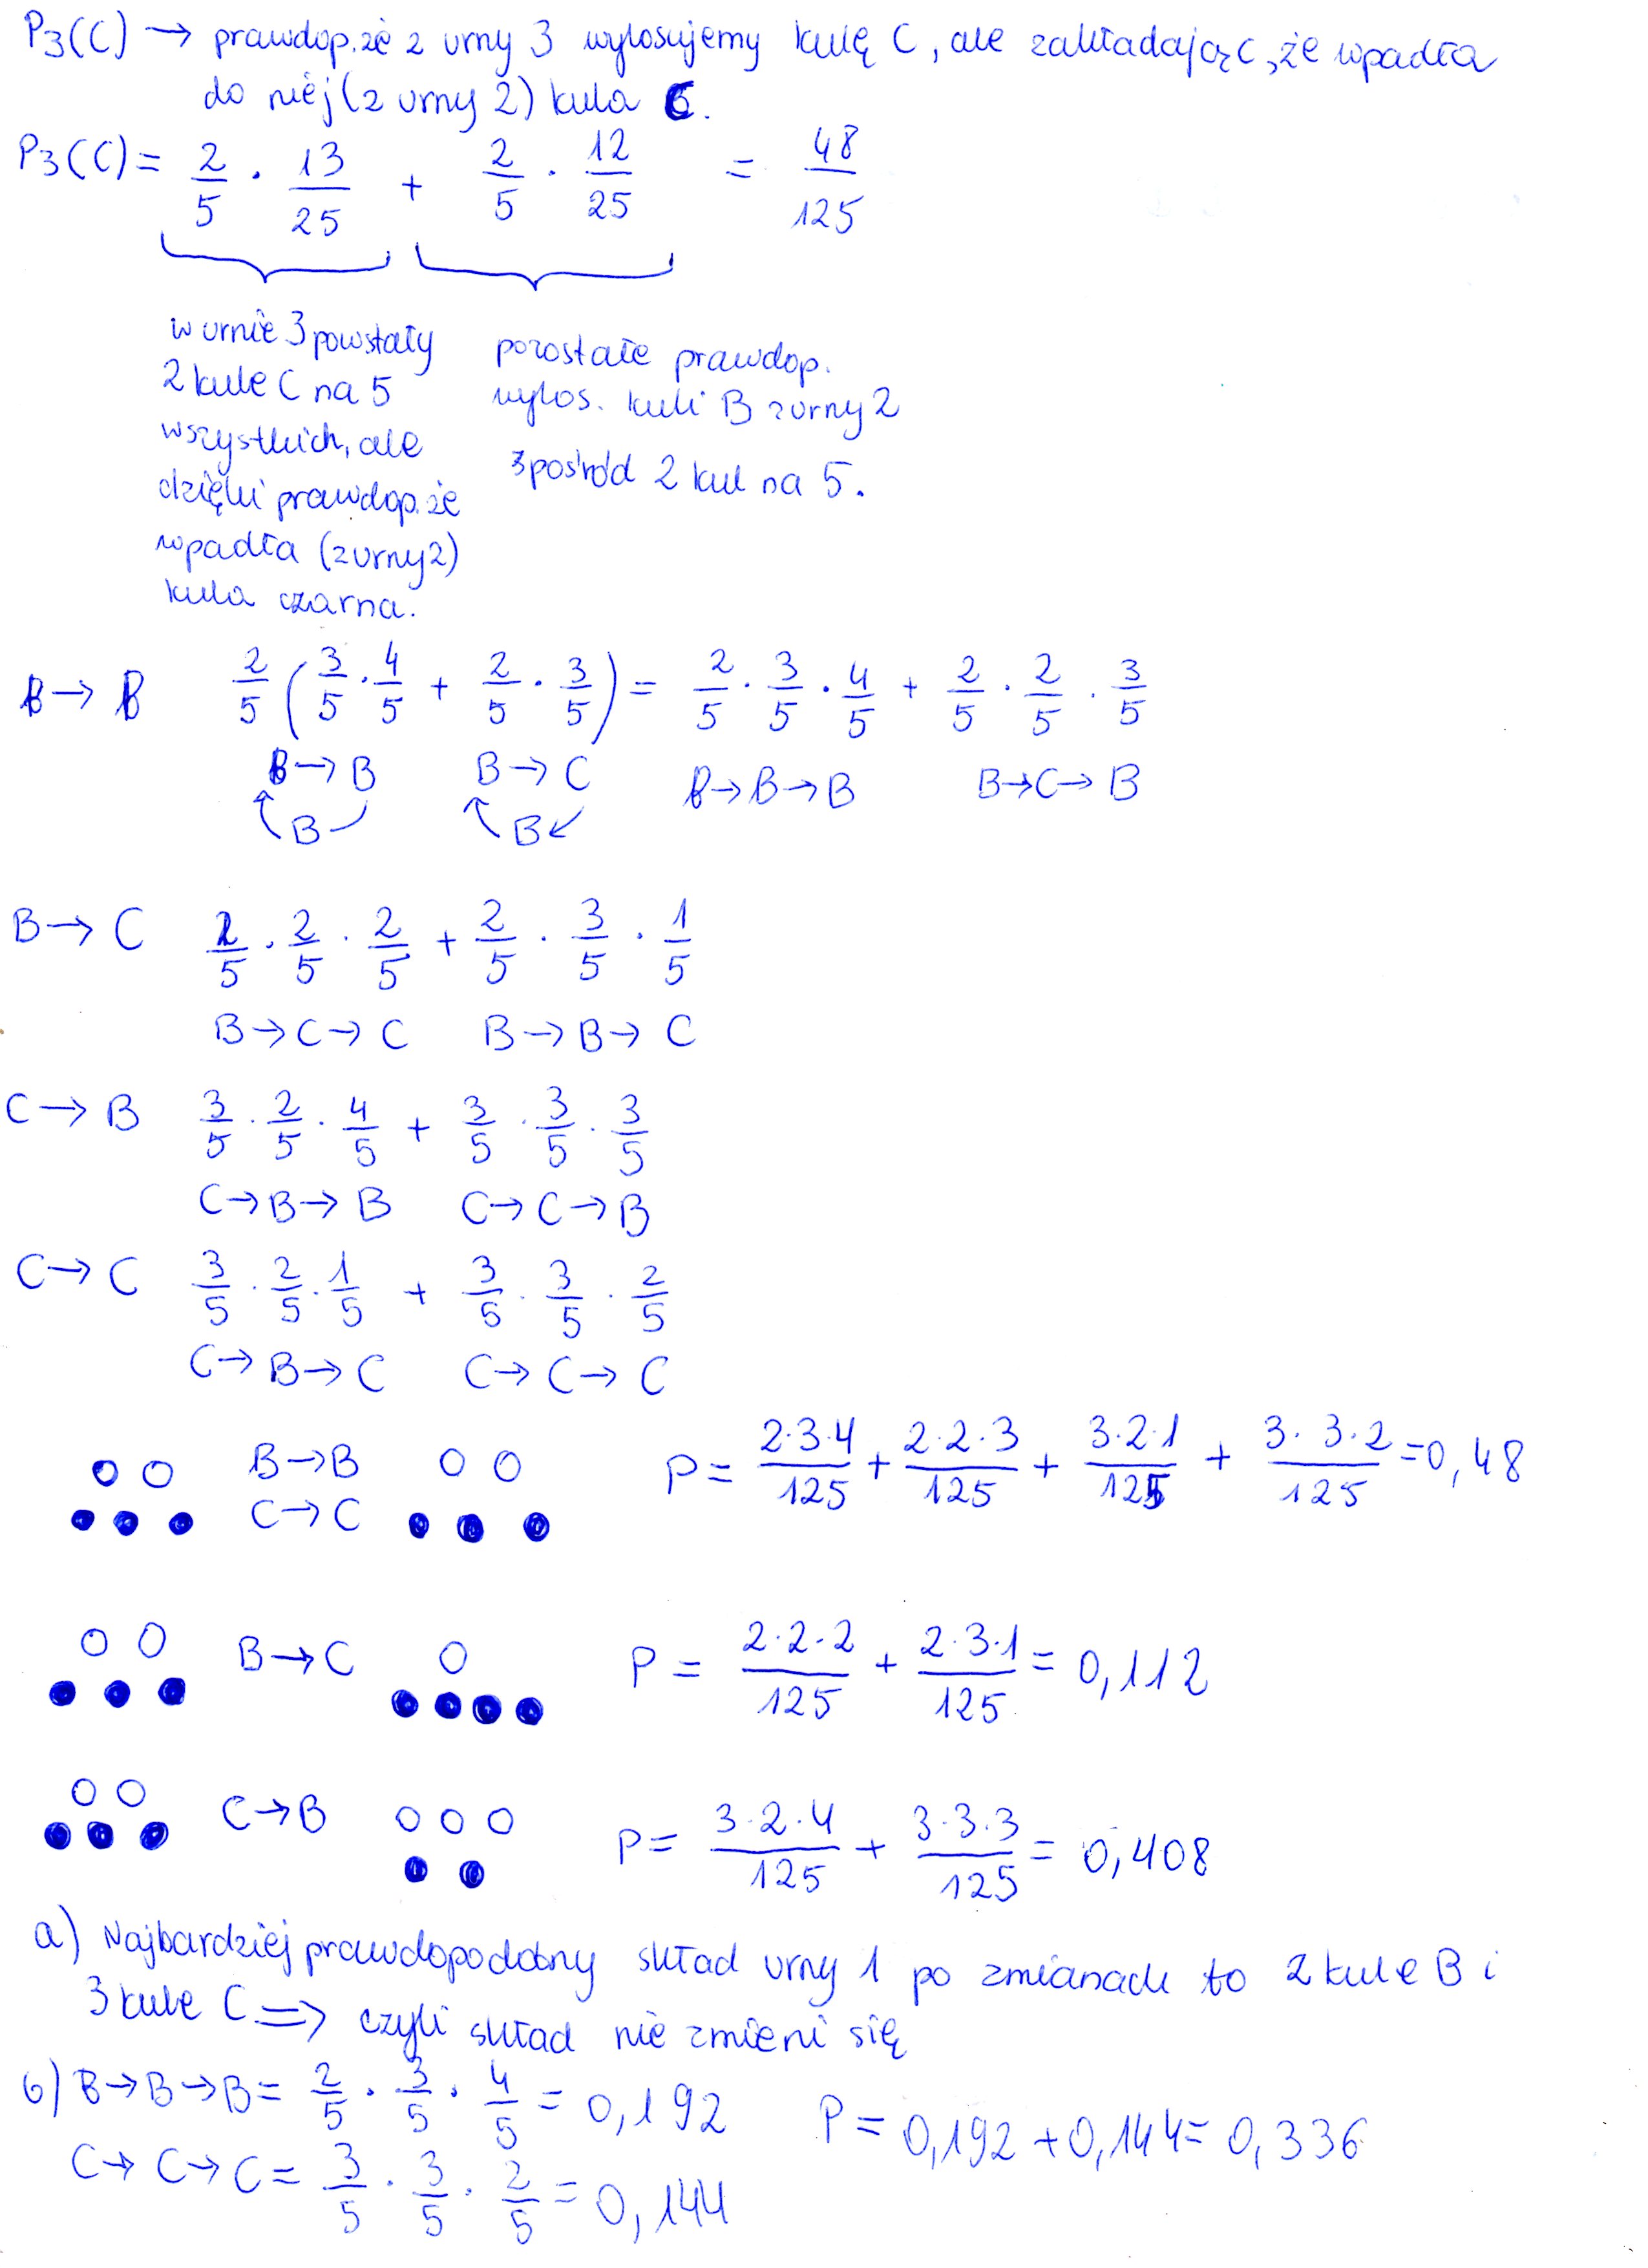 P₃(C) → prawdop. że z urny 3 wylosujemy kulę C, ale zakładając, że wpadła
do niej (z urny 2) kula C.
P₃(C) = 2/5 · 13/25 + 2/5 · 12/25 = 48/125
w urnie 3 powstały
2 kule C na 5
wszystkich, ale
dzięki prawdop. że
wpadła (z urny 2)
kula czarna.
pozostałe prawdop.
wylos. kuli B z urny 2
spośród 2 kul na 5.
B → B 2/5 (3/5 · 4/5 + 2/5 · 3/5) = 2/5 · 3/5 · 4/5 + 2/5 · 2/5 · 3/5
B → B B → C B → B → B B → C → B
B B
B → C 2/5 · 2/5 · 2/5 + 2/5 · 3/5 · 1/5
B → C → C B → B → C
C → B 3/5 · 2/5 · 4/5 + 3/5 · 3/5 · 3/5
C → B → B C → C → B
C → C 3/5 · 2/5 · 1/5 + 3/5 · 3/5 · 2/5
C → B → C C → C → C
B → B P = 2·3·4/125 + 2·2·3/125 + 3·2·1/125 + 3·3·2/125 = 0,48
C → C
B → C P = 2·2·2/125 + 2·3·1/125 = 0,112
C → B P = 3·2·4/125 + 3·3·3/125 = 0,408
a) Najbardziej prawdopodobny skład urny 1 po zmianach to 2 kule B i
3 kule C ⇒ czyli skład nie zmieni się
b) B → B → B = 2/5 · 3/5 · 4/5 = 0,192 P = 0,192 + 0,144 = 0,336
C → C → C = 3/5 · 3/5 · 2/5 = 0,144